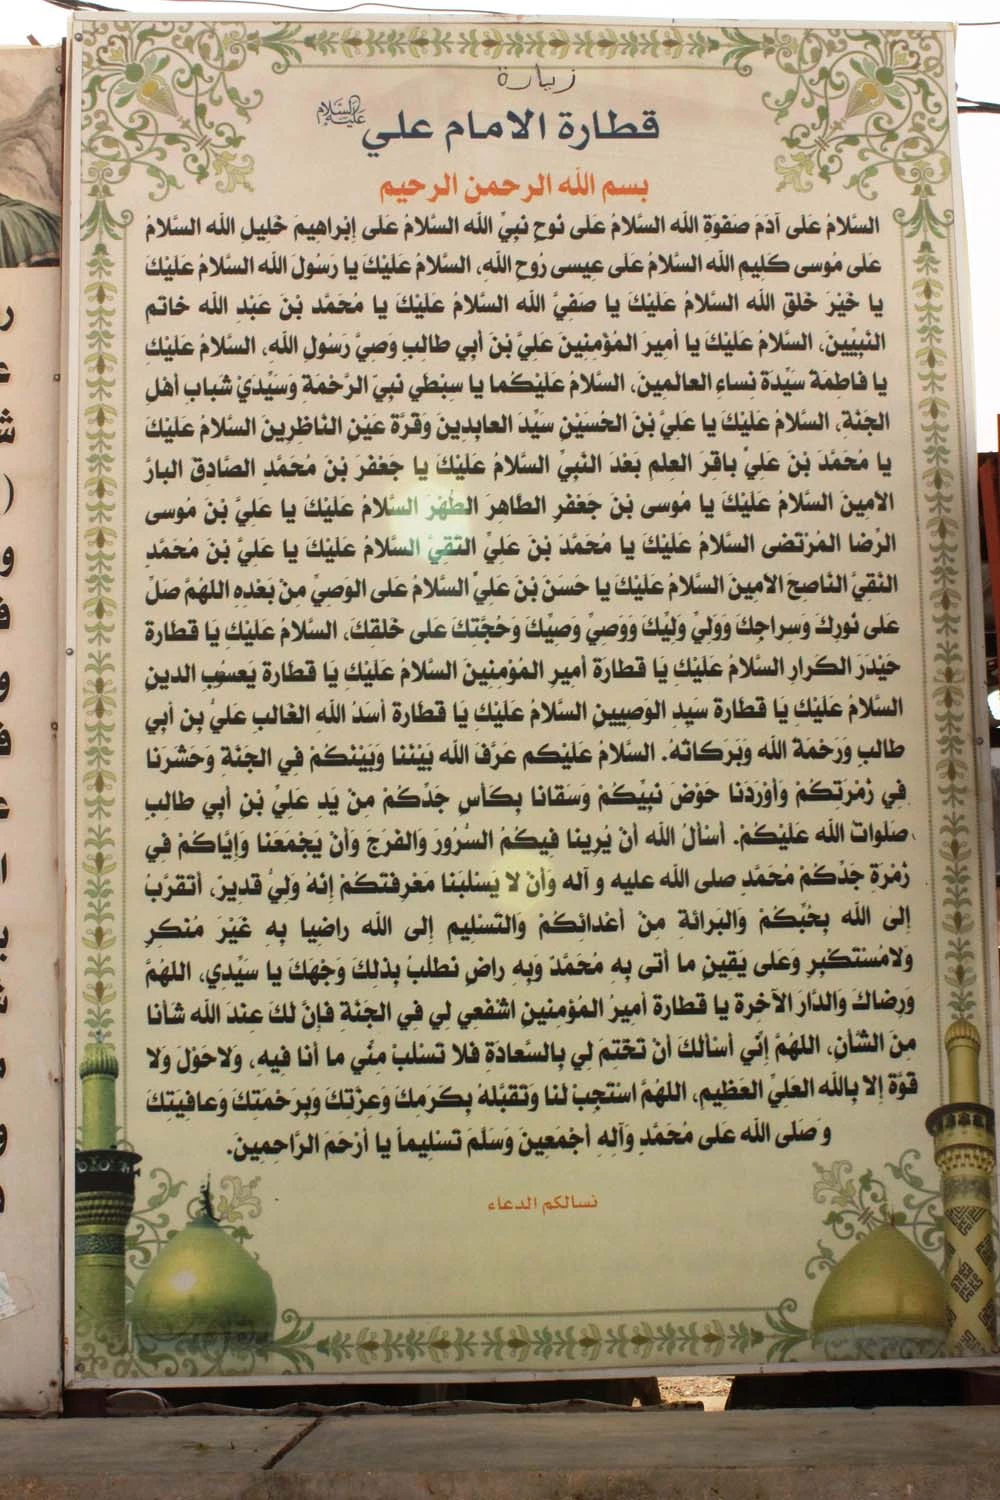 زيارة
قطارة الامام علي عليه السلام
بسم الله الرحمن الرحيم
السَّلامُ على آدَمَ صَفوَةِ الله السَّلامُ عَلى نُوحٍ نَبِيِّ الله السَّلامُ عَلى إبْراهيمَ خَليلِ الله السَّلامُ
عَلى مُوسى كَليمِ الله السَّلامُ عَلى عِيسى رُوحِ اللهِ، السَّلامُ عَلَيْكَ يا رَسُولَ الله السَّلامُ عَلَيْكَ
يا خَيْرَ خَلقِ الله السَّلامُ عَلَيْكَ يا صَفيَّ الله السَّلامُ عَلَيْكَ يا مُحَمَّد بنَ عَبْدِ الله خاتم
النَبِيِّينَ، السَّلامُ عَلَيْكَ يا أميرَ المُؤمِنينَ عَلِيَّ بنَ أبي طالِبٍ وَصِيَّ رَسُولِ الله، السَّلامُ عَلَيْكِ
يا فاطِمَة سَيِّدَة نِساءِ العالمِينَ، السَّلامُ عَلَيْكُما يا سِبْطي نَبِيِّ الرَّحْمَةِ وَسَيِّدَيْ شَبابِ أهْلِ
الجَنَةِ، السَّلامُ عَلَيْكَ يا عَلِيَّ بْنَ الحُسَيْنِ سَيِّدَ العابِدِينَ وَقُرَّة عَيْنِ النَاظرِينَ السَّلامُ عَلَيْكَ
يا مُحَمَّد بنَ عَلِيٍّ باقِرَ العِلمِ بَعْدَ النَبِيِّ السَّلامُ عَلَيْكَ يا جَعْفَرَ بْنَ مُحَمَّدٍ الصَّادِقَ البارَّ
الامِينَ السَّلامُ عَلَيْكَ يا مُوسى بْنَ جَعْفَرٍ الطَّاهِرَ الطُهْرَ السَّلامُ عَلَيْكَ يا عَلِيَّ بْنَ مُوسى
الرِّضا المُرْتضى السَّلامُ عَلَيْكَ يا مُحَمَّدَ بْنَ عَلِيٍّ التقيَّ السَّلامُ عَلَيْكَ يا عَلِيَّ بْنَ مُحَمَّدٍ
النَقِيَّ النَاصِحَ الامِينَ السَّلامُ عَلَيْكَ يا حَسَنَ بْنَ عَلِيٍّ السَّلامُ عَلى الوَصِيِّ مِنْ بَعْدِهِ اللهُمَّ صَلِّ
عَلى نُورِكَ وَسِراجِكَ وَوَلِيِّ وَلِيِّكَ وَوَصِيِّ وَصِيِّكَ وَحُجَّتِكَ عَلى خَلقِكَ، السَّلامُ عَلَيْكِ يَا قطارة
حَيْدَرَ الكَرارِ السَّلامُ عَلَيْكِ يَا قطارة أميرِ المُؤمِنينَ السَّلامُ عَلَيْكِ يَا قطارة يَعسُوبِ الدينِ
السَّلامُ عَلَيْكِ يَا قطارة سيدِ الوَصِيينِ السَّلامُ عَلَيْكِ يَا قطارة أسَدُ اللهِ الغالبِ عَليُّ بِن أبي
طالبِ وَرَحْمَة الله وَبَرَكاتُهُ. السَّلامُ عَلَيْكم عَرَّفَ الله بَيْنَنا وَبَيْنَكُمْ فِي الجَنَةِ وَحَشَرَنا
فِي زُمْرَتِكُمْ وَأوْرَدَنا حَوْضَ نَبِيِّكُمْ وَسَقانا بِكَأسِ جَدِّكُمْ مِنْ يَدِ عَلِيِّ بْنِ أبِي طالِبٍ
صَلَواتُ الله عَلَيْكُمْ. أسْألُ الله أنْ يُرِينا فِيكُمُ السُّرُورَ وَالفَرَجَ وَأنْ يَجْمَعَنا وَإيّاكُمْ فِي
زُمْرَةِ جَدِّكُمْ مُحَمَّدٍ صلى الله عليه و آله وَأنْ لا يَسْلبَنا مَعْرِفتكُمْ إنهُ وَلِيٌّ قدِيرٌ، أتقرَّبُ
إلىَ الله بِحُبِّكُمْ وَالبَرائةِ مِنْ أعْدائِكُمْ وَالتَسْليمِ إلى الله راضِيا بِهِ غَيْرَ مُنكِرٍ
وَلامُسْتَكْبِرٍ وَعَلى يَقينِ ما أتى بِهِ مُحَمَّدٌ وَبِهِ راضٍ نَطلبُ بِذلِكَ وَجْهَكَ يا سَيِّدي، اللهُمَّ
وَرِضاكَ وَالدَّارَ الآخِرة يا قطارة أمِيرُ المُؤمِنينِ اشْفعِي لي فِي الجَنَةِ فإنَّ لكَ عِندَ الله شَأنا
مِنَ الشَأنِ، اللهُمَّ إنِّي أسْألكَ أنْ تَخْتِمَ لِي بِالسَّعادَةِ فلا تَسْلبْ مِنِّي ما أنا فِيهِ، وَلاحَوْلَ وَلا
قوَّة إلا بِالله العَلِيِّ العَظِيمِ، اللهُمَّ اسْتجِبْ لنا وَتقبَّلهُ بِكَرَمِكَ وَعِزَّتِكَ وَبِرَحْمَتِكَ وَعافِيَتِكَ
وَ صَلى الله عَلى مُحَمَّدٍ وَآلِهِ أجْمَعِينَ وَسَلَّمَ تَسْلِيماً يا أرْحَمَ الرَّاحِمِينَ.
نسالكم الدعاء